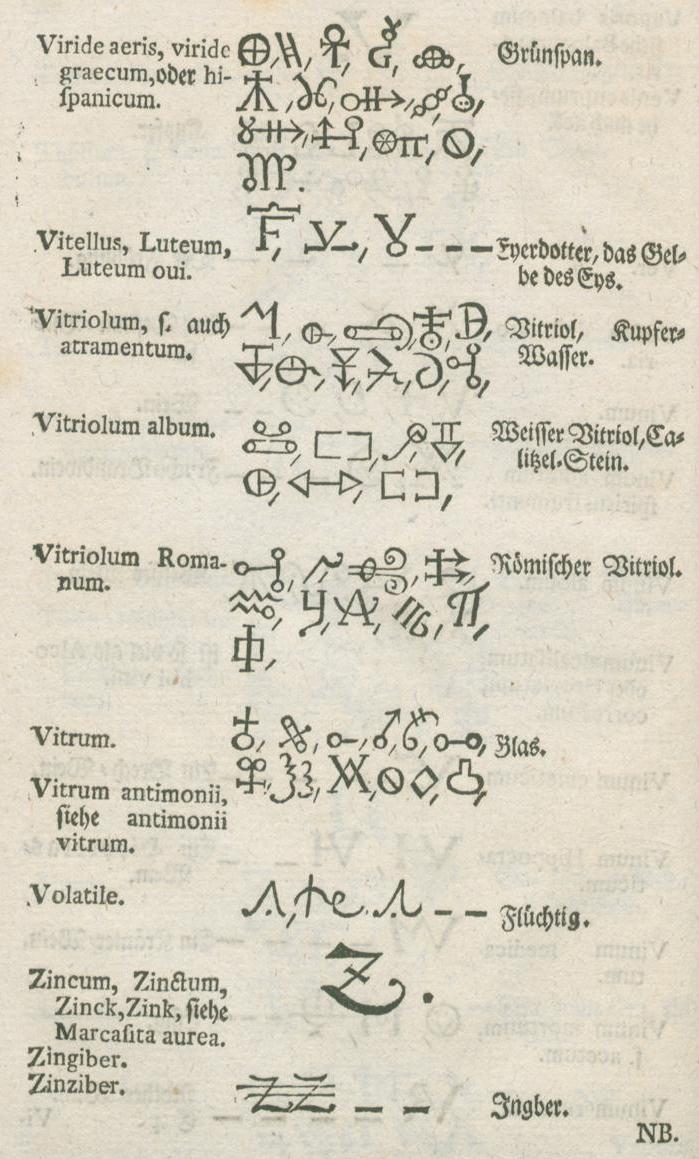 Viride aeris, viride
graecum, oder hi-
spanicum.
Grünspan.
Vitellus, Luteum,
Luteum oui.
Eyerdotter, das Gel-
be des Eys.
Vitriolum, s. auch
atramentum.
Vitriol, Kupfer-
Wasser.
Vitriolum album.
Weisser Vitriol, Ca-
litzel-Stein.
Vitriolum Roma-
num.
Römischer Vitriol.
Vitrum.
Glas.
Vitrum antimonii,
siehe antimonii
vitrum.
Volatile.
Flüchtig.
Z.
Zincum, Zinctum,
Zinck, Zink, siehe
Marcasita aurea.
Zingiber.
Zinziber.
Ingber.
NB.